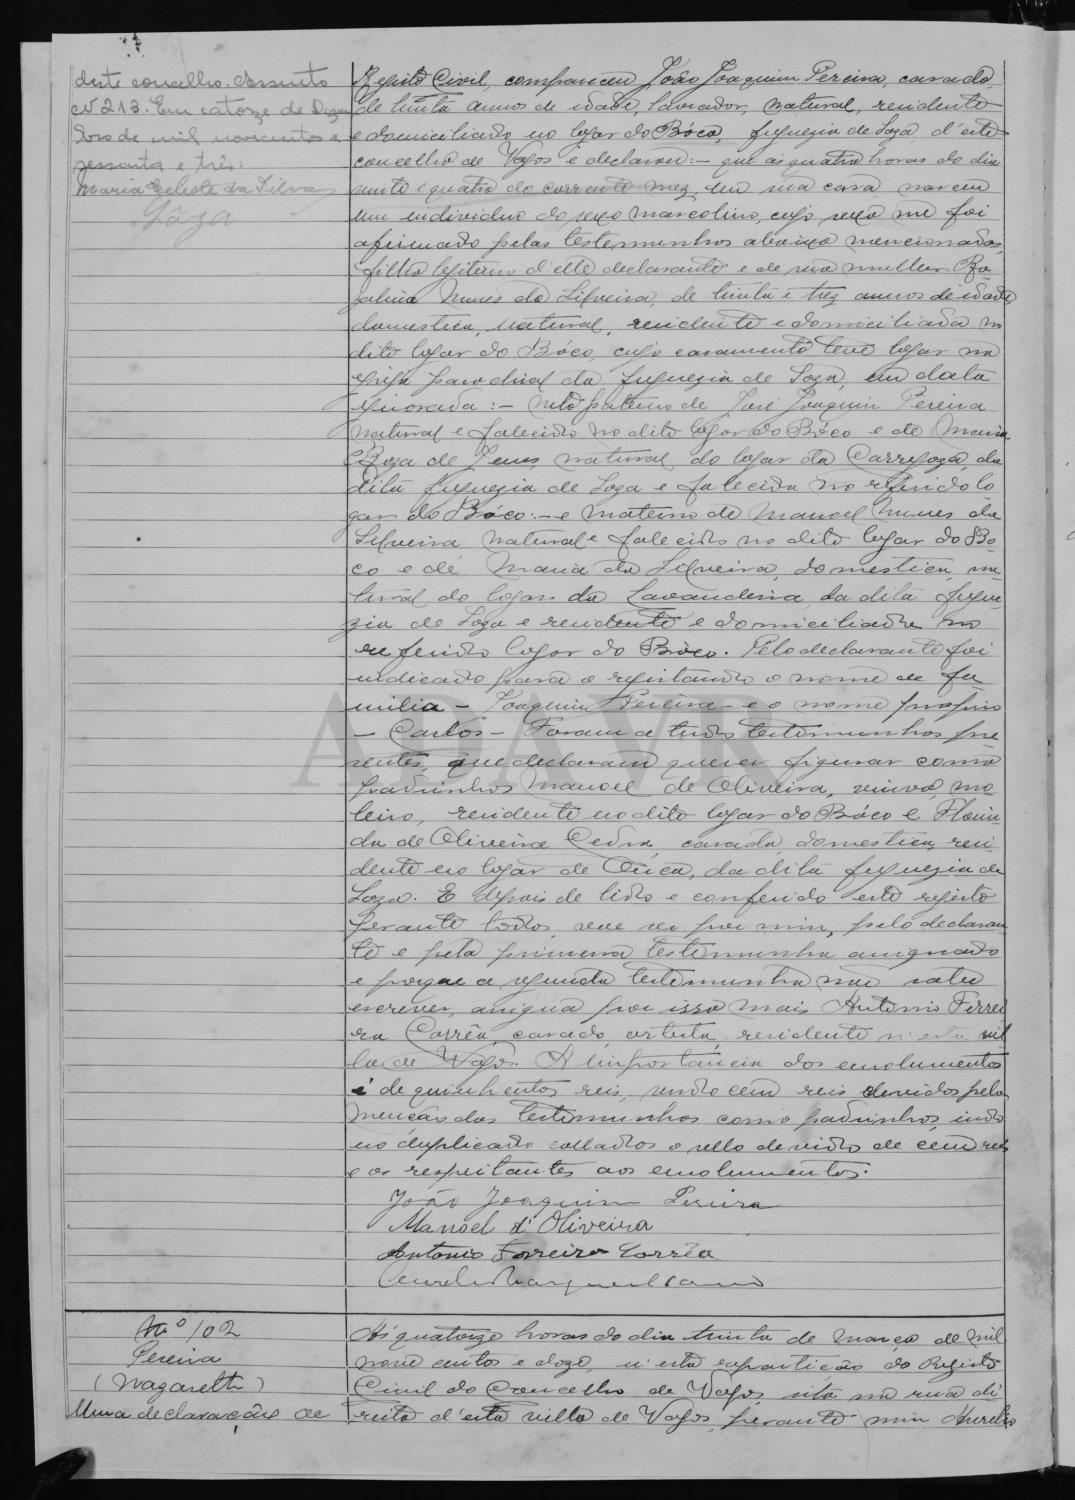 deste concelho. Assento
Nº 213. Em catorze de Dezem
bro de mil novecentos e
sessenta e três.
Maria Celeste da Silva
Sôza
Registo Civil, compareceu João Joaquim Pereira, casado,
de trinta annos de idade, lavrador, natural, residente
e domiciliado no logar do Bóco, freguezia de Soza, d'este
concelho de Vagos e declarou: - que ás quatro horas do dia
vinte e quatro do corrente mez, em sua casa nasceu
um individuo do sexo masculino, cujo sexo me foi
afirmado pelas testemunhas abaixo mencionadas,
filho legitimo d'elle declarante e de sua mulher Ro
zalina Nunes da Silveira, de trinta e trez annos de idade
domestica, natural, residente e domiciliada no
dito logar do Bóco, cujo casamento teve logar na
egreja parochial da freguezia de Soza, em data
ignorada: - neto paterno de José Joaquim Pereira
natural e falecido no dito logar do Bóco e de Maria
Roza de Jesus, natural do logar da Carregoza, da
dita freguezia de Soza e falecida no referido lo
gar do Bóco: - e materno de Manoel Nunes da
Silveira, natural e falecido no dito logar do Bó
co e de Maria da Silveira, domestica, na
tural do logar da Lavandeira, da dita fregue
zia de Soza e residente e domiciliada no
referido logar do Bóco. Pelo declarante foi
indicado para o registando o nome de fa
milia - Joaquim Pereira - e o nome proprio
- Carlos - Foram a tudo testemunhas pre
sentes, que declaram querer figurar como
padrinhos Manoel de Oliveira, viuvo, mo
leiro, residente no dito logar do Bóco e Florin
da de Oliveira Cedra, casada, domestica, resi
dente no logar de Ouca, da dita freguezia de
Soza. E depois de lido e conferido este registo
perante todos, vae ser por mim, pelo declaran
te e pela primeira testemunha assignado
e porque a segunda testemunha não sabe
escrever, assigna por isso mais Antonio Ferrei
ra Corrêa, casado, artista, residente n'esta vil
la de Vagos. A importancia dos emolumentos
é de quinhentos reis, sendo cem reis devidos pela
menção das testemunhas como padrinhos, indo
no duplicado collados o sello devido de cem reis
e os respeitantes aos emolumentos.
João Joaquim Pereira
Manoel d'Oliveira
Antonio Ferreira Corrêa
Nº 102
Pereira
(Nazareth)
Uma declaração de
Ás quatorze horas do dia trinta de março de mil
nove centos e doze, n'esta repartição do Registo
Civil do Concelho de Vagos, sita na rua di
reita d'esta villa de Vagos, perante mim Aurelio
ADAVR